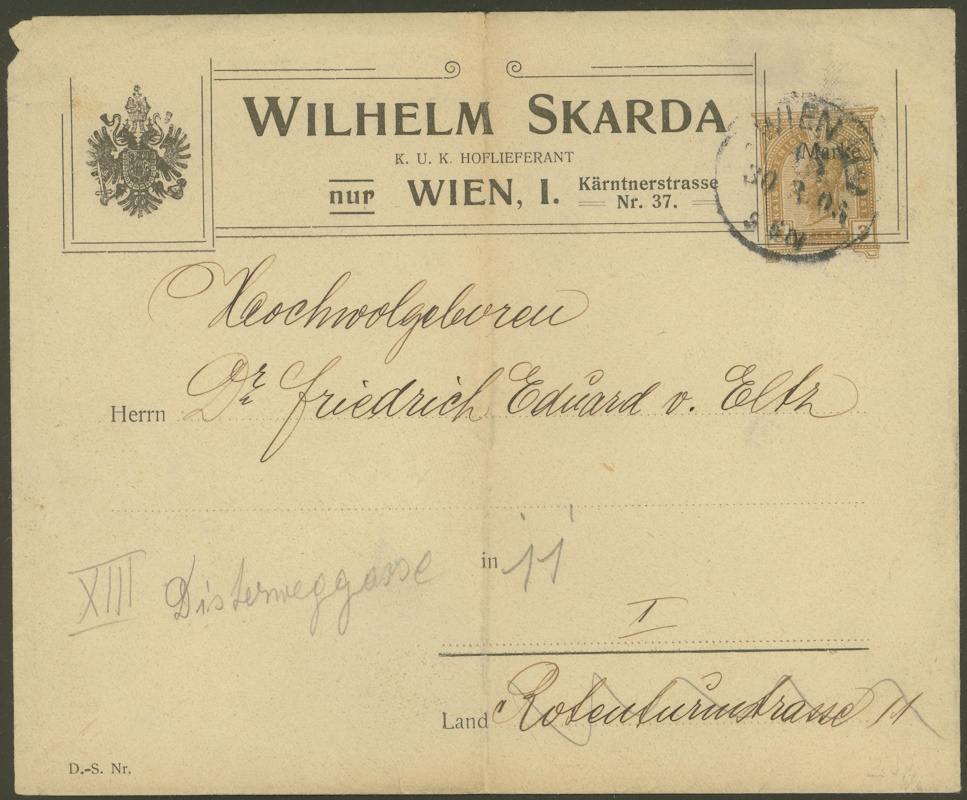 WILHELM SKARDA
K. U. K. HOFLIEFERANT
nur WIEN, I. Kärntnerstrasse Nr. 37.
WIEN
30
Hochwolgeboren
Herrn Dr Friedrich Eduard v. Eltz
in 11
XIII Disterweggasse
I
Land Rotenturmstrasse 11
D.-S. Nr.